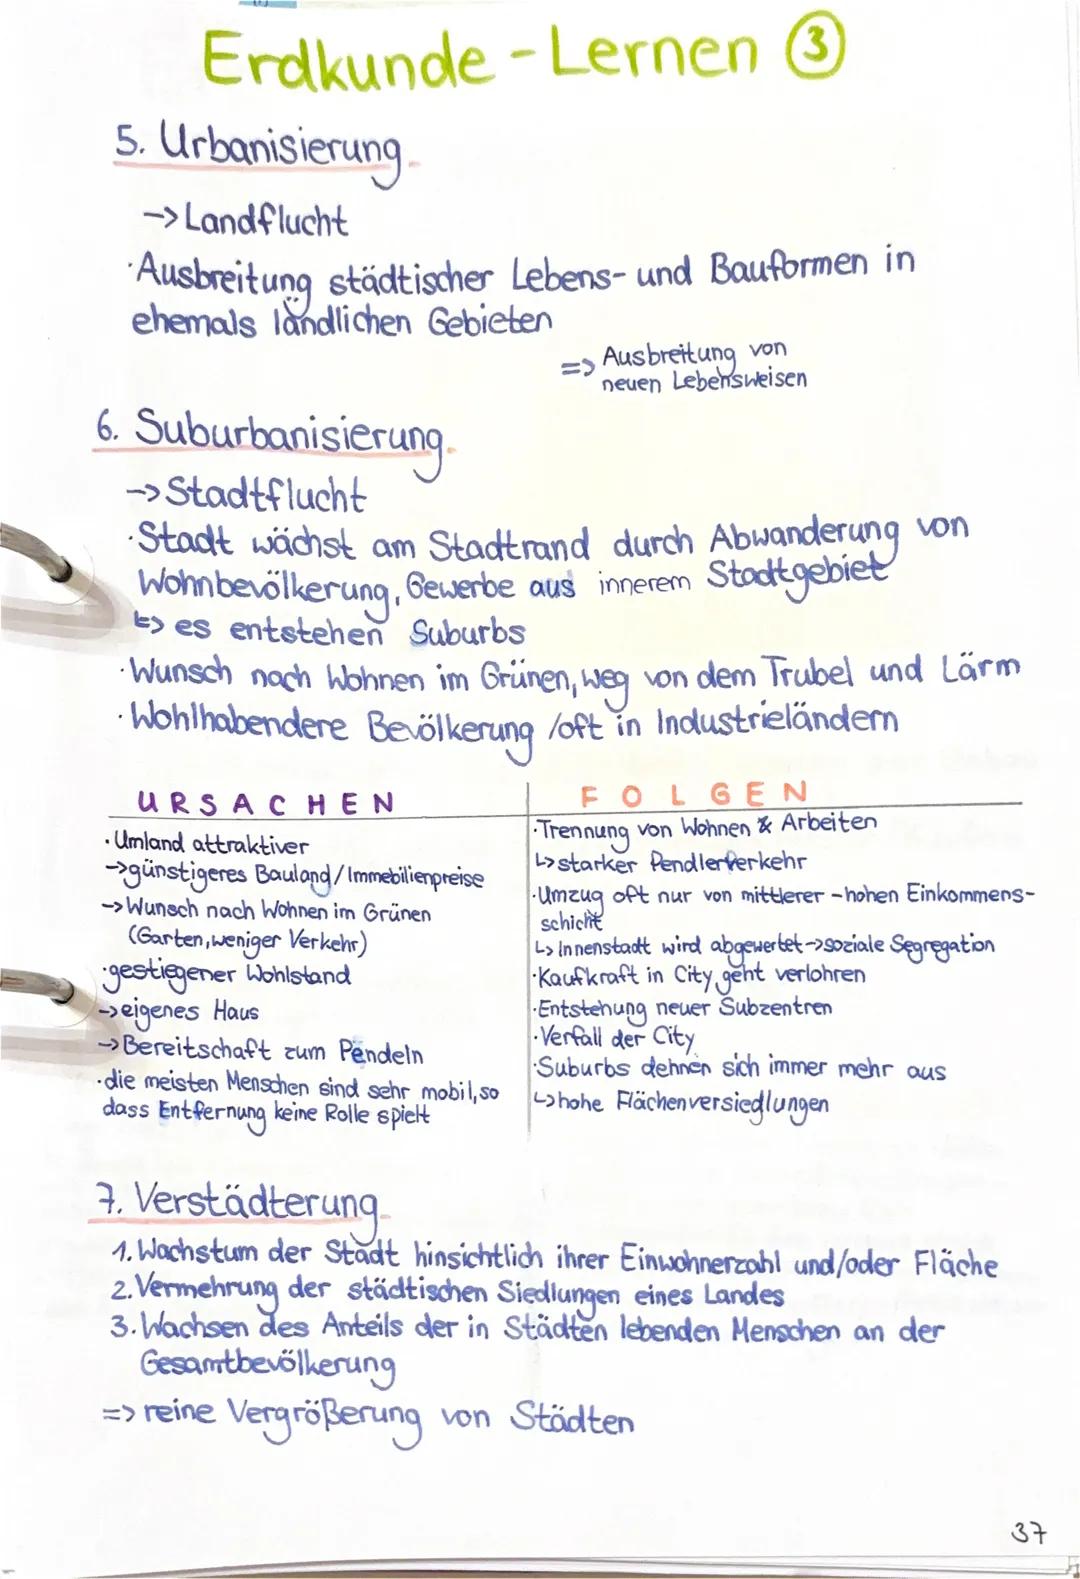 Erdkunde - Lernen ③
5. Urbanisierung
-> Landflucht
· Ausbreitung städtischer Lebens- und Bauformen in
ehemals ländlichen Gebieten
=> Ausbreitung von
neuen Lebensweisen
6. Suburbanisierung
-> Stadtflucht
· Stadt wächst am Stadtrand durch Abwanderung von
Wohnbevölkerung, Gewerbe aus innerem Stadtgebiet
↳> es entstehen Suburbs
· Wunsch nach Wohnen im Grünen, weg von dem Trubel und Lärm
· Wohlhabendere Bevölkerung /oft in Industrieländern
URSACHEN
· Umland attraktiver
-> günstigeres Bauland/Immobilienpreise
-> Wunsch nach Wohnen im Grünen
(Garten, weniger Verkehr)
· gestiegener Wohlstand
-> eigenes Haus
-> Bereitschaft zum Pendeln
· die meisten Menschen sind sehr mobil, so
dass Entfernung keine Rolle spielt
FOLGEN
· Trennung von Wohnen & Arbeiten
↳ starker Pendlerverkehr
· Umzug oft nur von mittlerer - hohen Einkommens-
schicht
↳ Innenstadt wird abgewertet -> soziale Segregation
· Kaufkraft in City geht verlohren
· Entstehung neuer Subzentren
· Verfall der City
· Suburbs dehnen sich immer mehr aus
↳ hohe Flächenversiedlungen
7. Verstädterung
1. Wachstum der Stadt hinsichtlich ihrer Einwohnerzahl und/oder Fläche
2. Vermehrung der städtischen Siedlungen eines Landes
3. Wachsen des Anteils der in Städten lebenden Menschen an der
Gesamtbevölkerung
=> reine Vergrößerung von Städten
37